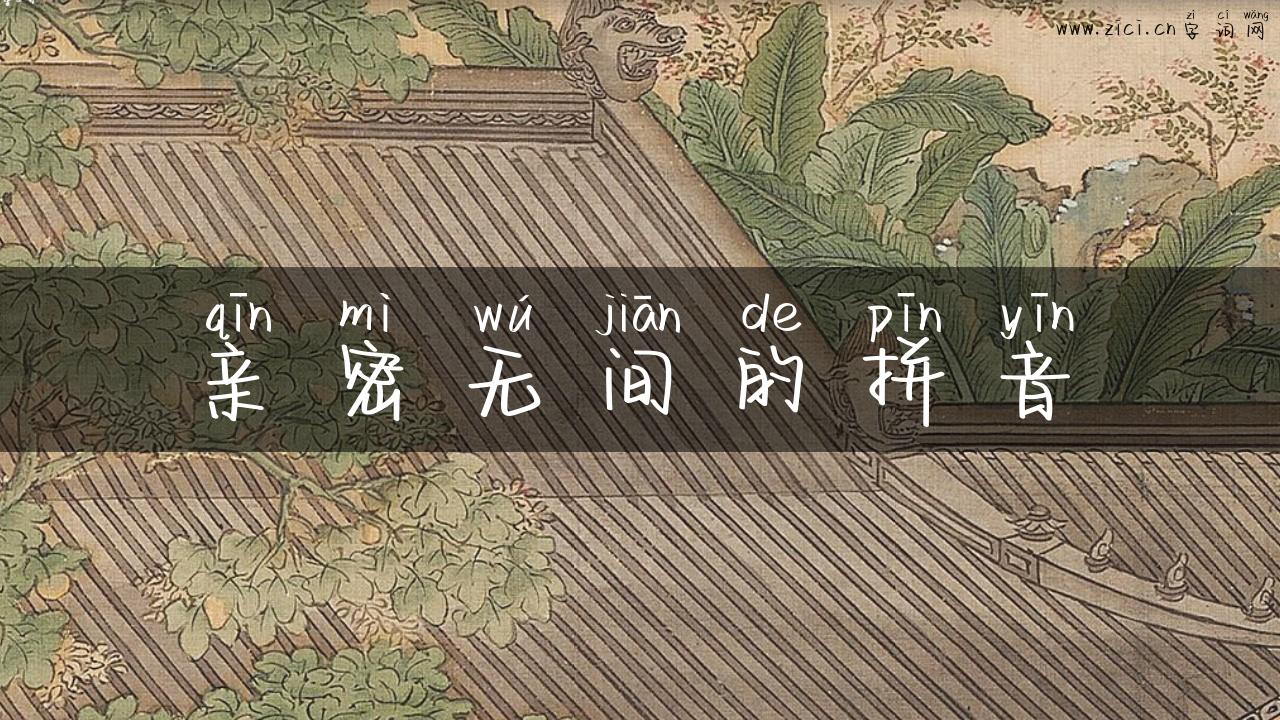 zì cí wǎng
www.zici.cn 字词网
qīn mì wú jiān de pīn yīn
亲密无间的拼音